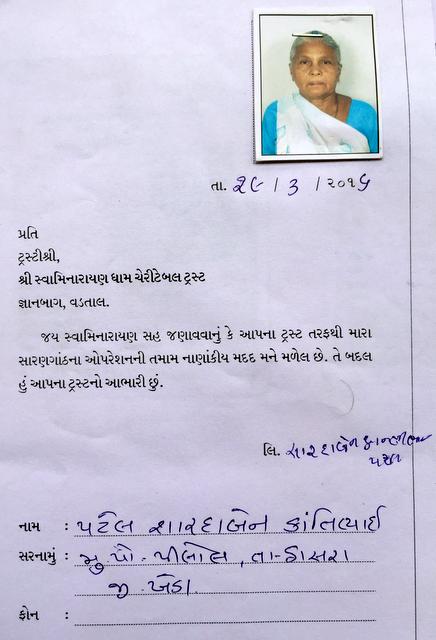 તા. ૨૯ / 3 / ૨૦૧૬
પ્રતિ
ટ્રસ્ટીશ્રી,
શ્રી સ્વામિનારાયણ ધામ ચેરીટેબલ ટ્રસ્ટ
જ્ઞાનબાગ, વડતાલ.
જય સ્વામિનારાયણ સહ જણાવવાનું કે આપના ટ્રસ્ટ તરફથી મારા
સારણગાંઠના ઓપરેશનની તમામ નાણાંકીય મદદ મને મળેલ છે. તે બદલ
હું આપના ટ્રસ્ટનો આભારી છું.
લિ. સારદાબેન
પટેલ
નામ : પટેલ શારદાબેન કાંતિભાઈ
સરનામું : મુ પો. પીલોલ, તા-ઠાસરા
જી. ખેડા.
ફોન :